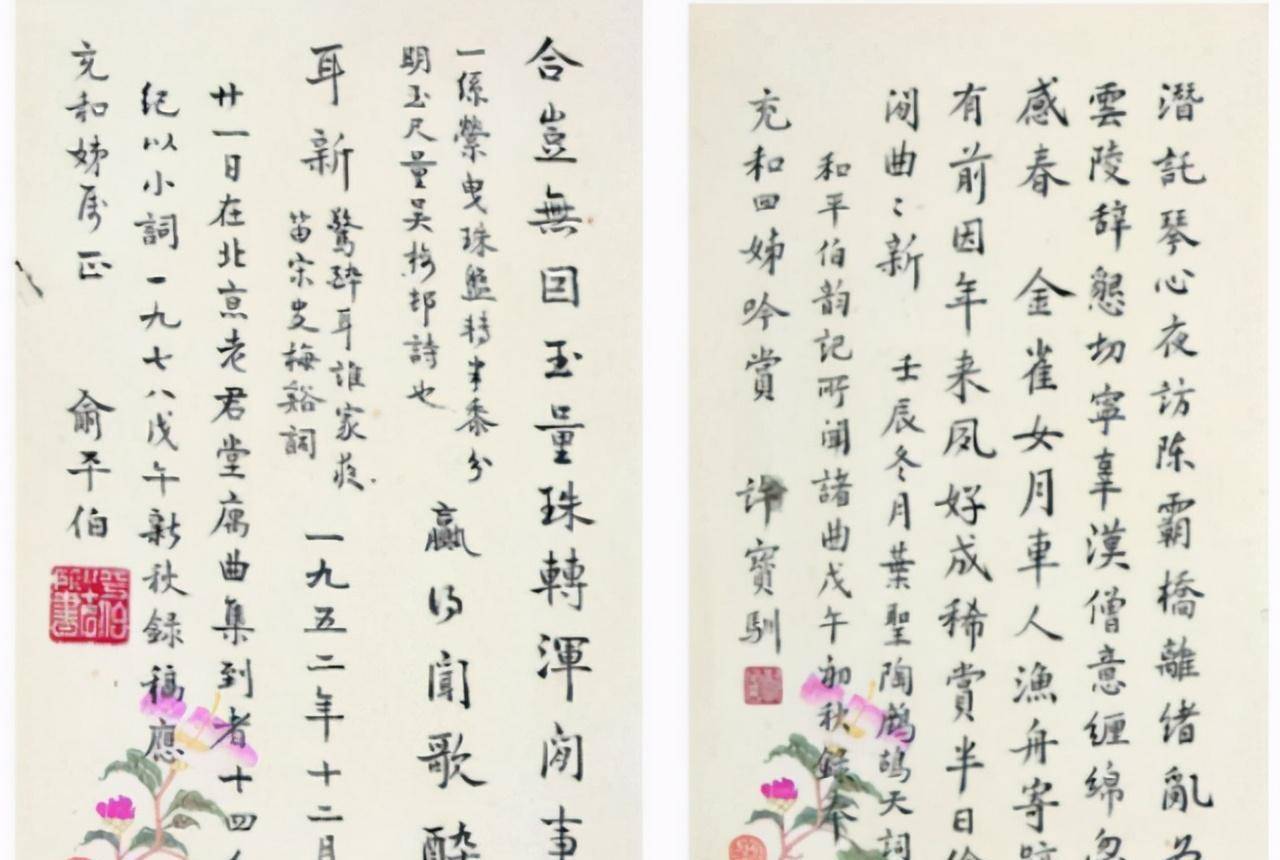 潛託琴心夜訪陈霸橋離绪亂
雲陵辞懇切寧辜漢僧意缠綿忽
感春 金雀女月車人漁舟寄
有前因年来夙好成稀賞半日
闻曲〻新 壬辰冬月葉聖陶鹧鸪天詞
和平伯韵記所闻諸曲戊午初秋録奉
充和四姊吟賞 许寶馴
合豈無因玉量珠轉渾闲事
一係縈曳珠盤轉半黍分
明玉尺量吴梅邨詩也
贏得闻歌醉
耳新
驚醉耳誰家夜
笛宋史梅谿詞
一九五二年十二月
廿一日在北京老君堂寓曲集到者十四
紀以小詞一九七八戊午新秋録稿應
充和姊属正 俞平伯